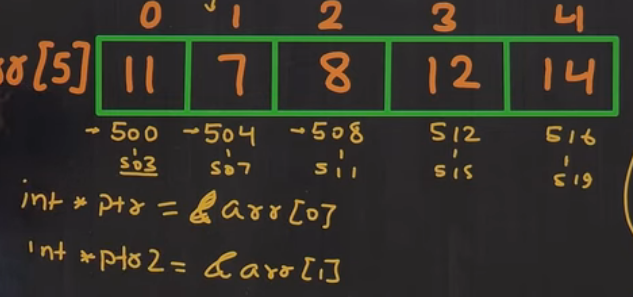 0 1 2 3 4
rr[5] 11 7 8 12 14
500 504 508 512 516
503 507 511 515 519
int * ptr = & arr[0]
int *ptr2 = & arr[1]